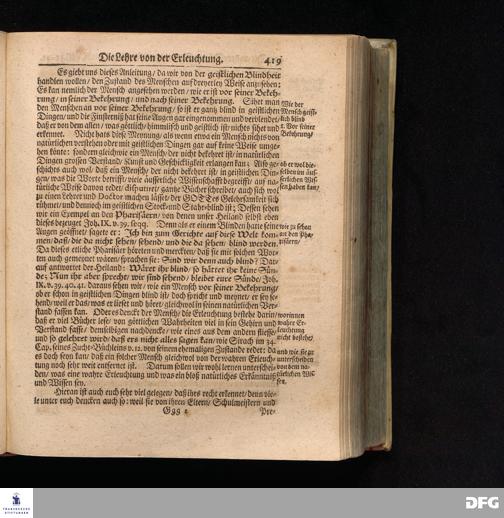 Die Lehre von der Erleuchtung. 419
Es giebt uns dieses Anleitung/ da wir von der geistlichen Blindheit
handlen wollen/ den Zustand des Menschen auf zweyerley Weise anzusehen:
Es kan nemlich der Mensch angesehen werden/ wie er ist vor seiner Bekeh-
rung/ in seiner Bekehrung/ und nach seiner Bekehrung. Sihet man
den Menschen an vor seiner Bekehrung/ so ist er gantz blind in geistlichen
Dingen/ und die Finsterniß hat seine Augen gar eingenommen und verblendet/
daß er von dem allen/ was göttlich/ himmlisch und geistlich ist/ nichts sihet und
erkennet. Nicht hat es diese Meynung/ als wenn etwa ein Mensch nichts von
natürlichen verstehen oder mit geistlichen Dingen gar auf keine Weise umge-
hen könte: sondern gleichwie ein Mensch/ der nicht bekehret ist/ in natürlichen
Dingen grossen Verstand/ Kunst und Geschicklichkeit erlangen kan; Also ge-
schichts auch wol/ daß ein Mensch/ der nicht bekehret ist/ in geistlichen Din-
gen/ was die Worte betrifft/ viele äusserliche Wissenschafft begreifft/ auf na-
türliche Weise davon redet/ disputiret/ gantze Bücher schreibet/ auch sich wol
zu einen Lehrer und Doctor machen lässet/ der GOttes Gelehrsamkeit sich
rühmet/ und dennoch im geistlichen Stock- und Stahr-blind ist; Dessen sehen
wir ein Exempel an den Pharisäern/ von denen unser Heiland selbst eben
dieses bezeuget Joh. IX. v. 39. seqq. Denn als er einem Blinden hatte seine
Augen geöffnet/ sagte er: Ich bin zum Gerichte auf diese Welt kom-
men/ daß/ die da nicht sehen/ sehend/ und die da sehen/ blind werden.
Da dieses etliche Pharisäer höreten und merckten/ daß sie mit solchen Wor-
ten auch gemeynet wären/ sprachen sie: Sind wir denn auch blind? Dar-
auf antwortet der Heiland: Wäret ihr blind/ so hättet ihr keine Sün-
de; Nun ihr aber sprecht/ wir sind sehend/ bleibet eure Sünde/ Joh.
IX. v. 39. 40. 41. daraus sehen wir/ wie ein Mensch vor seiner Bekehrung/
ob er schon in geistlichen Dingen blind ist/ doch spricht und meynet/ er sey se-
hend/ weil er das/ was er lieset und höret/ gleichwol in seinen natürlichen Ver-
stand fassen kan. Oder es denckt der Mensch/ die Erleuchtung bestehe darin/
daß er viel Bücher lese/ von göttlichen Wahrheiten viel in sein Gehirn und
Verstand fasse/ demselbigen nachdencke/ wie eines aus dem andern fliesse/
und so gelehret wird/ daß ers nicht alles sagen kan/ wie Sirach im 34.
Cap. seines Zucht-Büchleins v. 12. von seinem ehemaligen Zustande redet: da
es doch seyn kan/ daß ein solcher Mensch gleichwol von der wahren Erleuch-
tung noch sehr weit entfernet ist. Darum sollen wir wohl lernen unterschei-
den/ was eine wahre Erleuchtung und was ein bloß natürliches Erkänntniß
und Wissen sey.
Hieran ist auch euch sehr viel gelegen/ daß ihrs recht erkennet/ denn vie-
le unter euch dencken auch so: weil sie von ihren Eltern/ Schulmeistern und
Ggg 2 Pre-
Wie der
Mensch geist-
lich blind
1. Vor seiner
Bekehrung/
ob er wol die-
selben im äus-
serlichen Wis-
sen haben kan/
wie zu sehen
an den Pha-
risäern/
worinnen
wahre Er-
leuchtung
nicht bestehe/
und wie sie zu
unterscheiden
von dem na-
türlichen Wis-
sen.
FRANCKESCHE
STIFTUNGEN
DFG